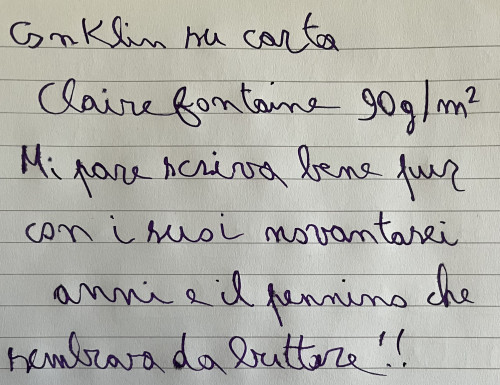 Conklin su carta
Clairefontaine 90g/m²
Mi pare scriva bene pur
con i suoi novantasei
anni e il pennino che
sembrava da buttare!!